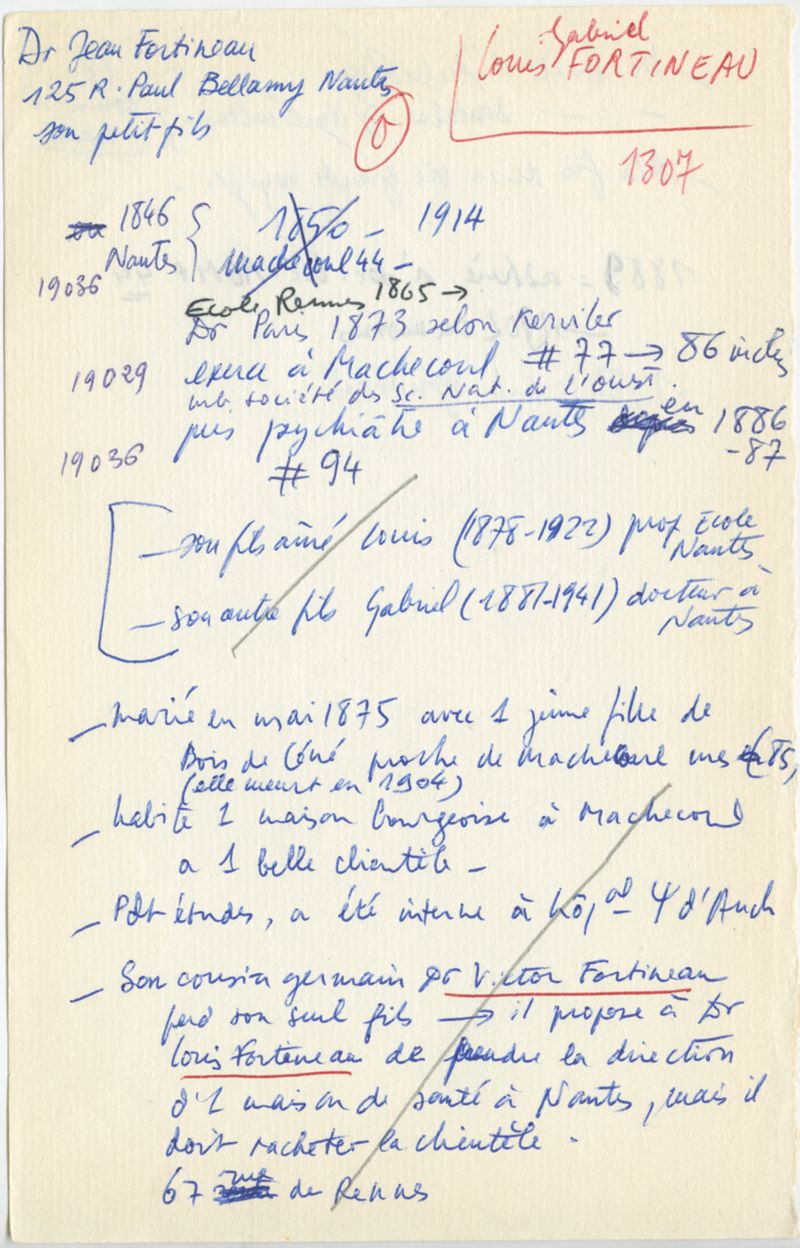 Dr Jean Fortineau
125 R. Paul Bellamy Nantes
son petit fils
Gabriel
Louis FORTINEAU
1307
1846
Nantes
1850 - 1914
Machecoul 44 -
19036
Ecole Rennes 1865 →
Dr Paris 1873 selon Kerviler
19029
exerce à Machecoul # 77 → 86 inclus
mb. société des Sc. Nat. de l'ouest.
puis psychiâtre à Nantes en 1886
-87
19036
# 94
- son fils aîné Louis (1878-1922) prof Ecole
Nantes
- son autre fils Gabriel (1881-1941) docteur à
Nantes
- marié en mai 1875 avec 1 jeune fille de
Bois de Céné proche de Machecoul
(elle meurt en 1904)
- habite 1 maison bourgeoise à Machecoul
a 1 belle clientèle -
- Pdt études, a été interne à hôpal Ψ d'Auch
- Son cousin germain Dr Victor Fortineau
perd son seul fils → il propose à Dr
Louis Fortineau de prendre la direction
d'1 maison de santé à Nantes, mais il
doit racheter la clientèle.
67 rue de Rennes